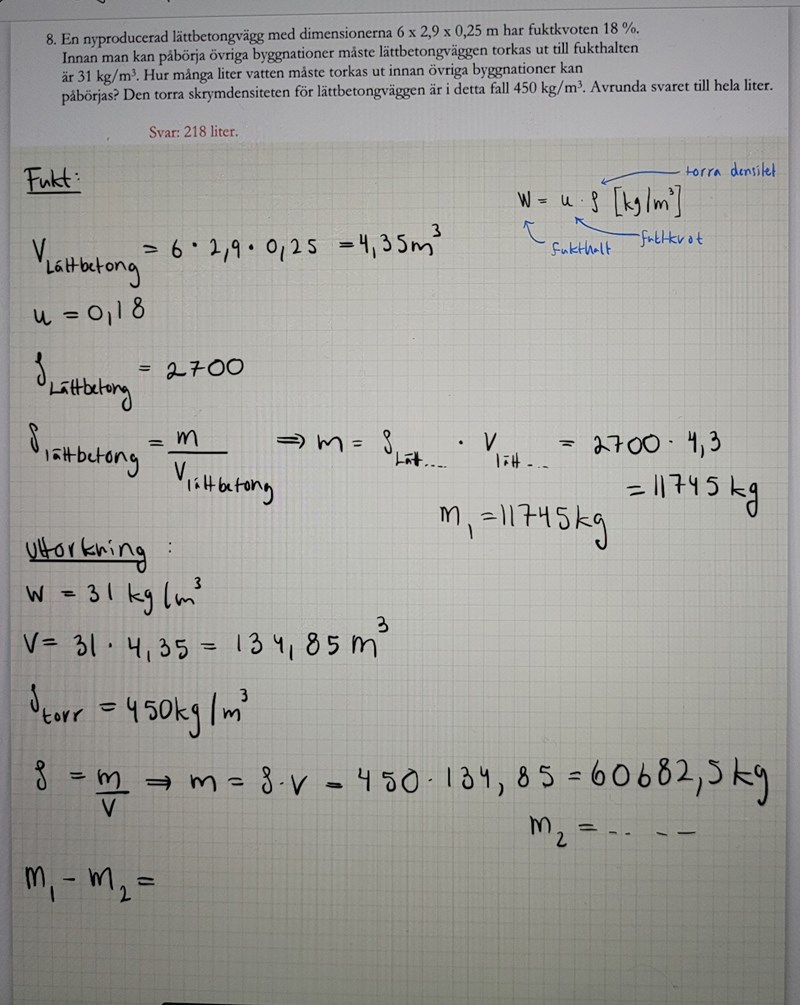 8. En nyproducerad lättbetongvägg med dimensionerna 6 x 2,9 x 0,25 m har fuktkvoten 18 %.
Innan man kan påbörja övriga byggnationer måste lättbetongväggen torkas ut till fukthalten
är 31 kg/m³. Hur många liter vatten måste torkas ut innan övriga byggnationer kan
påbörjas? Den torra skrymdensiteten för lättbetongväggen är i detta fall 450 kg/m³. Avrunda svaret till hela liter.
Svar: 218 liter.
Fukt:
torra densitet
W = u · ρ [kg/m³]
fukthalt
fuktkvot
V Lättbetong = 6 · 2,9 · 0,25 = 4,35m³
u = 0,18
ρ Lättbetong = 2700
ρ lättbetong = m / V lättbetong ⇒ m = ρ Lätt.... · V lätt... = 2700 · 4,3
= 11745 kg
m₁ = 11745 kg
Uttorkning :
W = 31 kg/m³
V = 31 · 4,35 = 134,85 m³
ρ torr = 450kg/m³
ρ = m / V ⇒ m = ρ · V = 450 · 134,85 = 60682,5 kg
m₂ = .. . – –
m₁ – m₂ =